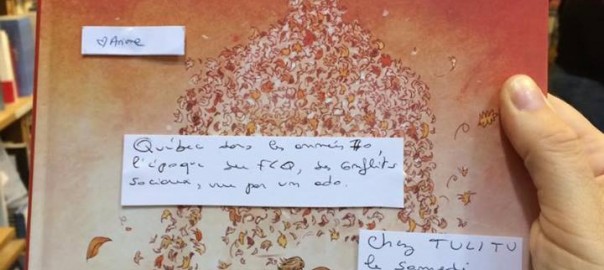 ♡ Ariane
Québec dans les années 70,
l'époque du FLQ, des conflits
sociaux, vue par un ado.
Chez TULITU
le samedi